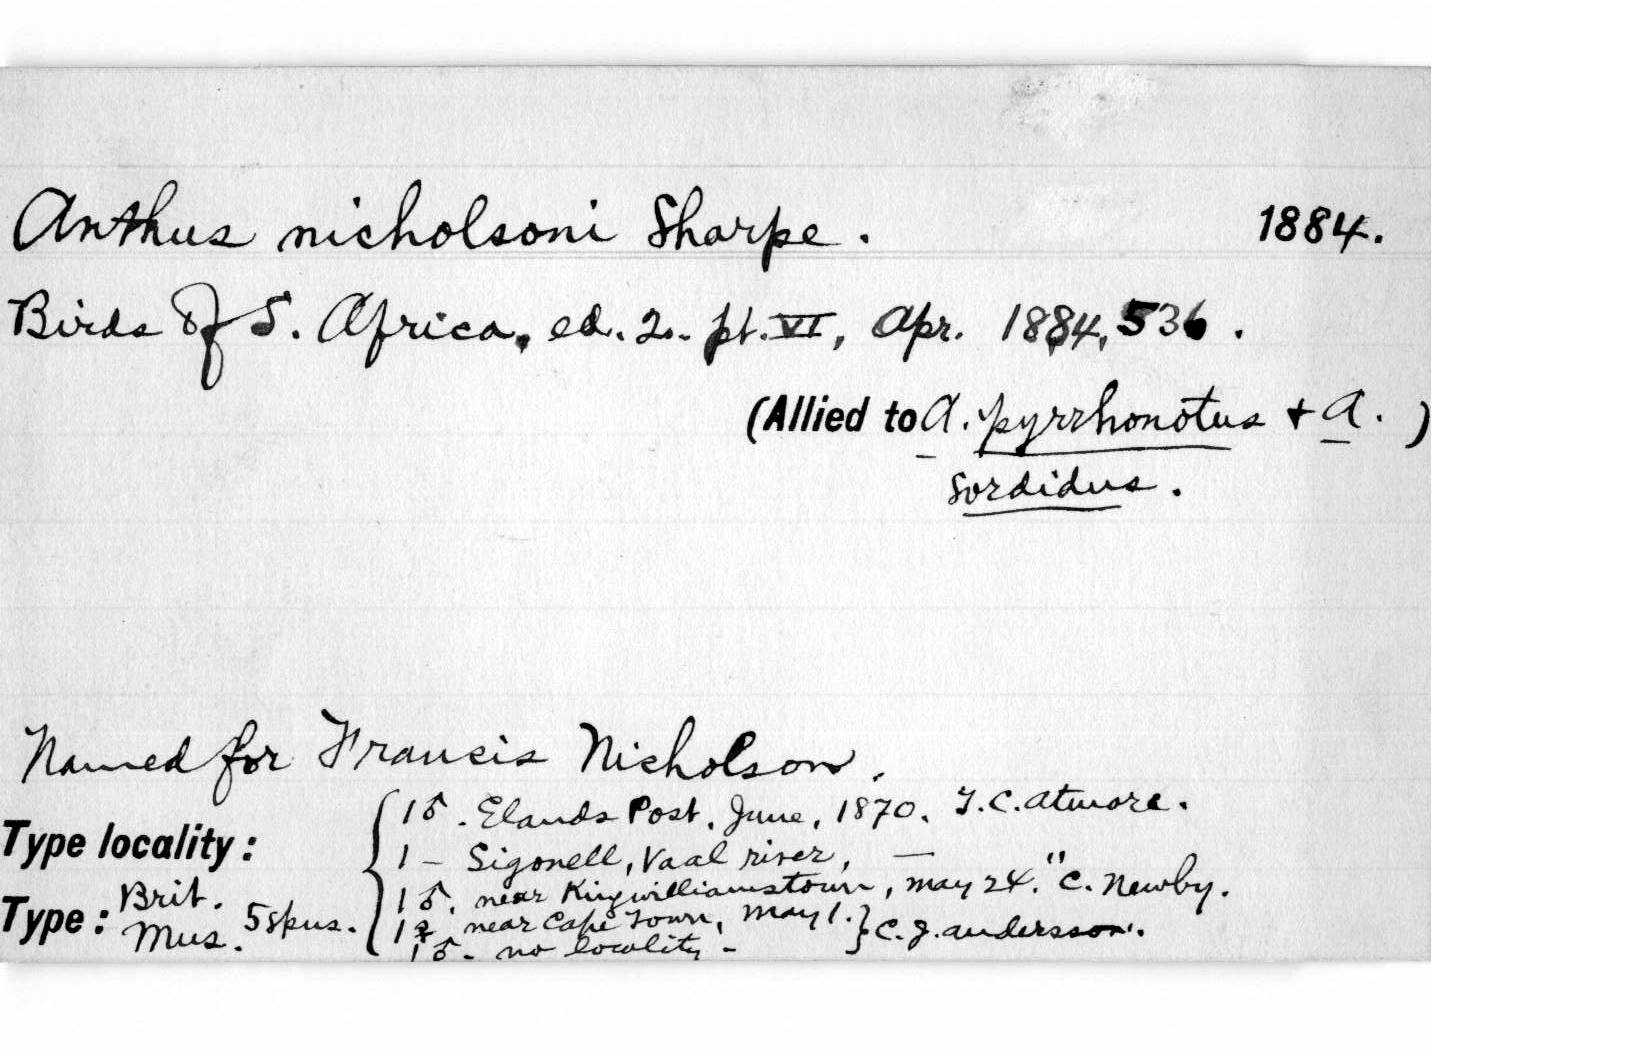 Anthus nicholsoni Sharpe. 1884.
Birds of S. Africa, ed. 2. pt. VI, Apr. 1884, 536.
(Allied to A. pyrrhonotus + A. )
sordidus.
Named for Francis Nicholson.
1♂. Elands Post, June, 1870. T.C. Atmore.
Type locality:
1 - Sigonell, Vaal river, — "
1♂. near Kingwilliamstown, May 24. C. Newby.
Type: Brit. Mus. 5 spns.
1♀ near Cape Town, May 1. } C.J. Andersson.
1♂ - no locality -